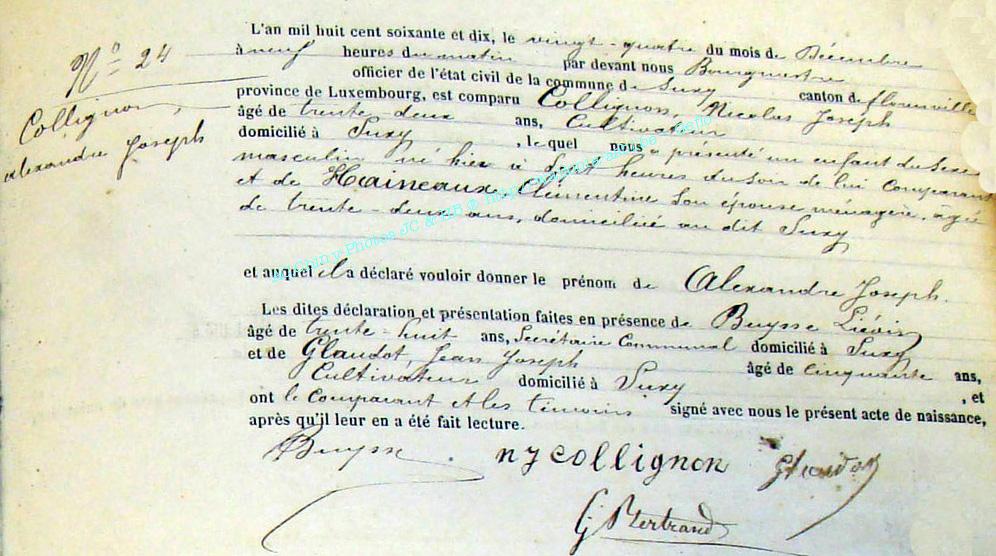 N° 24
Collignon,
alexandre Joseph
L'an mil huit cent soixante et dix, le vingt-quatre du mois de Décembre
à neuf heures du matin par devant nous Bourgmestre
officier de l'état civil de la commune de Suxy canton de florenville
province de Luxembourg, est comparu Collignon, Nicolas Joseph
âgé de trente-deux ans, Cultivateur
domicilié à Suxy, le quel nous a présenté un enfant du sexe
masculin né hier à Sept heures du soir de lui comparant
et de Haineaux Clémentine son épouse ménagère, âgée
de trente-deux ans, domiciliée au dit Suxy
et auquel il a déclaré vouloir donner le prénom de Alexandre Joseph.
Les dites déclaration et présentation faites en présence de Buysse Liévin
âgé de trente-huit ans, Secrétaire Communal domicilié à Suxy
et de Glaudot, Jean Joseph âgé de cinquante ans,
Cultivateur domicilié à Suxy, et
ont le comparant et les témoins signé avec nous le présent acte de naissance,
après qu'il leur en a été fait lecture.
Buysse n J collignon Glaudot
G Bertrand
Photos JC &